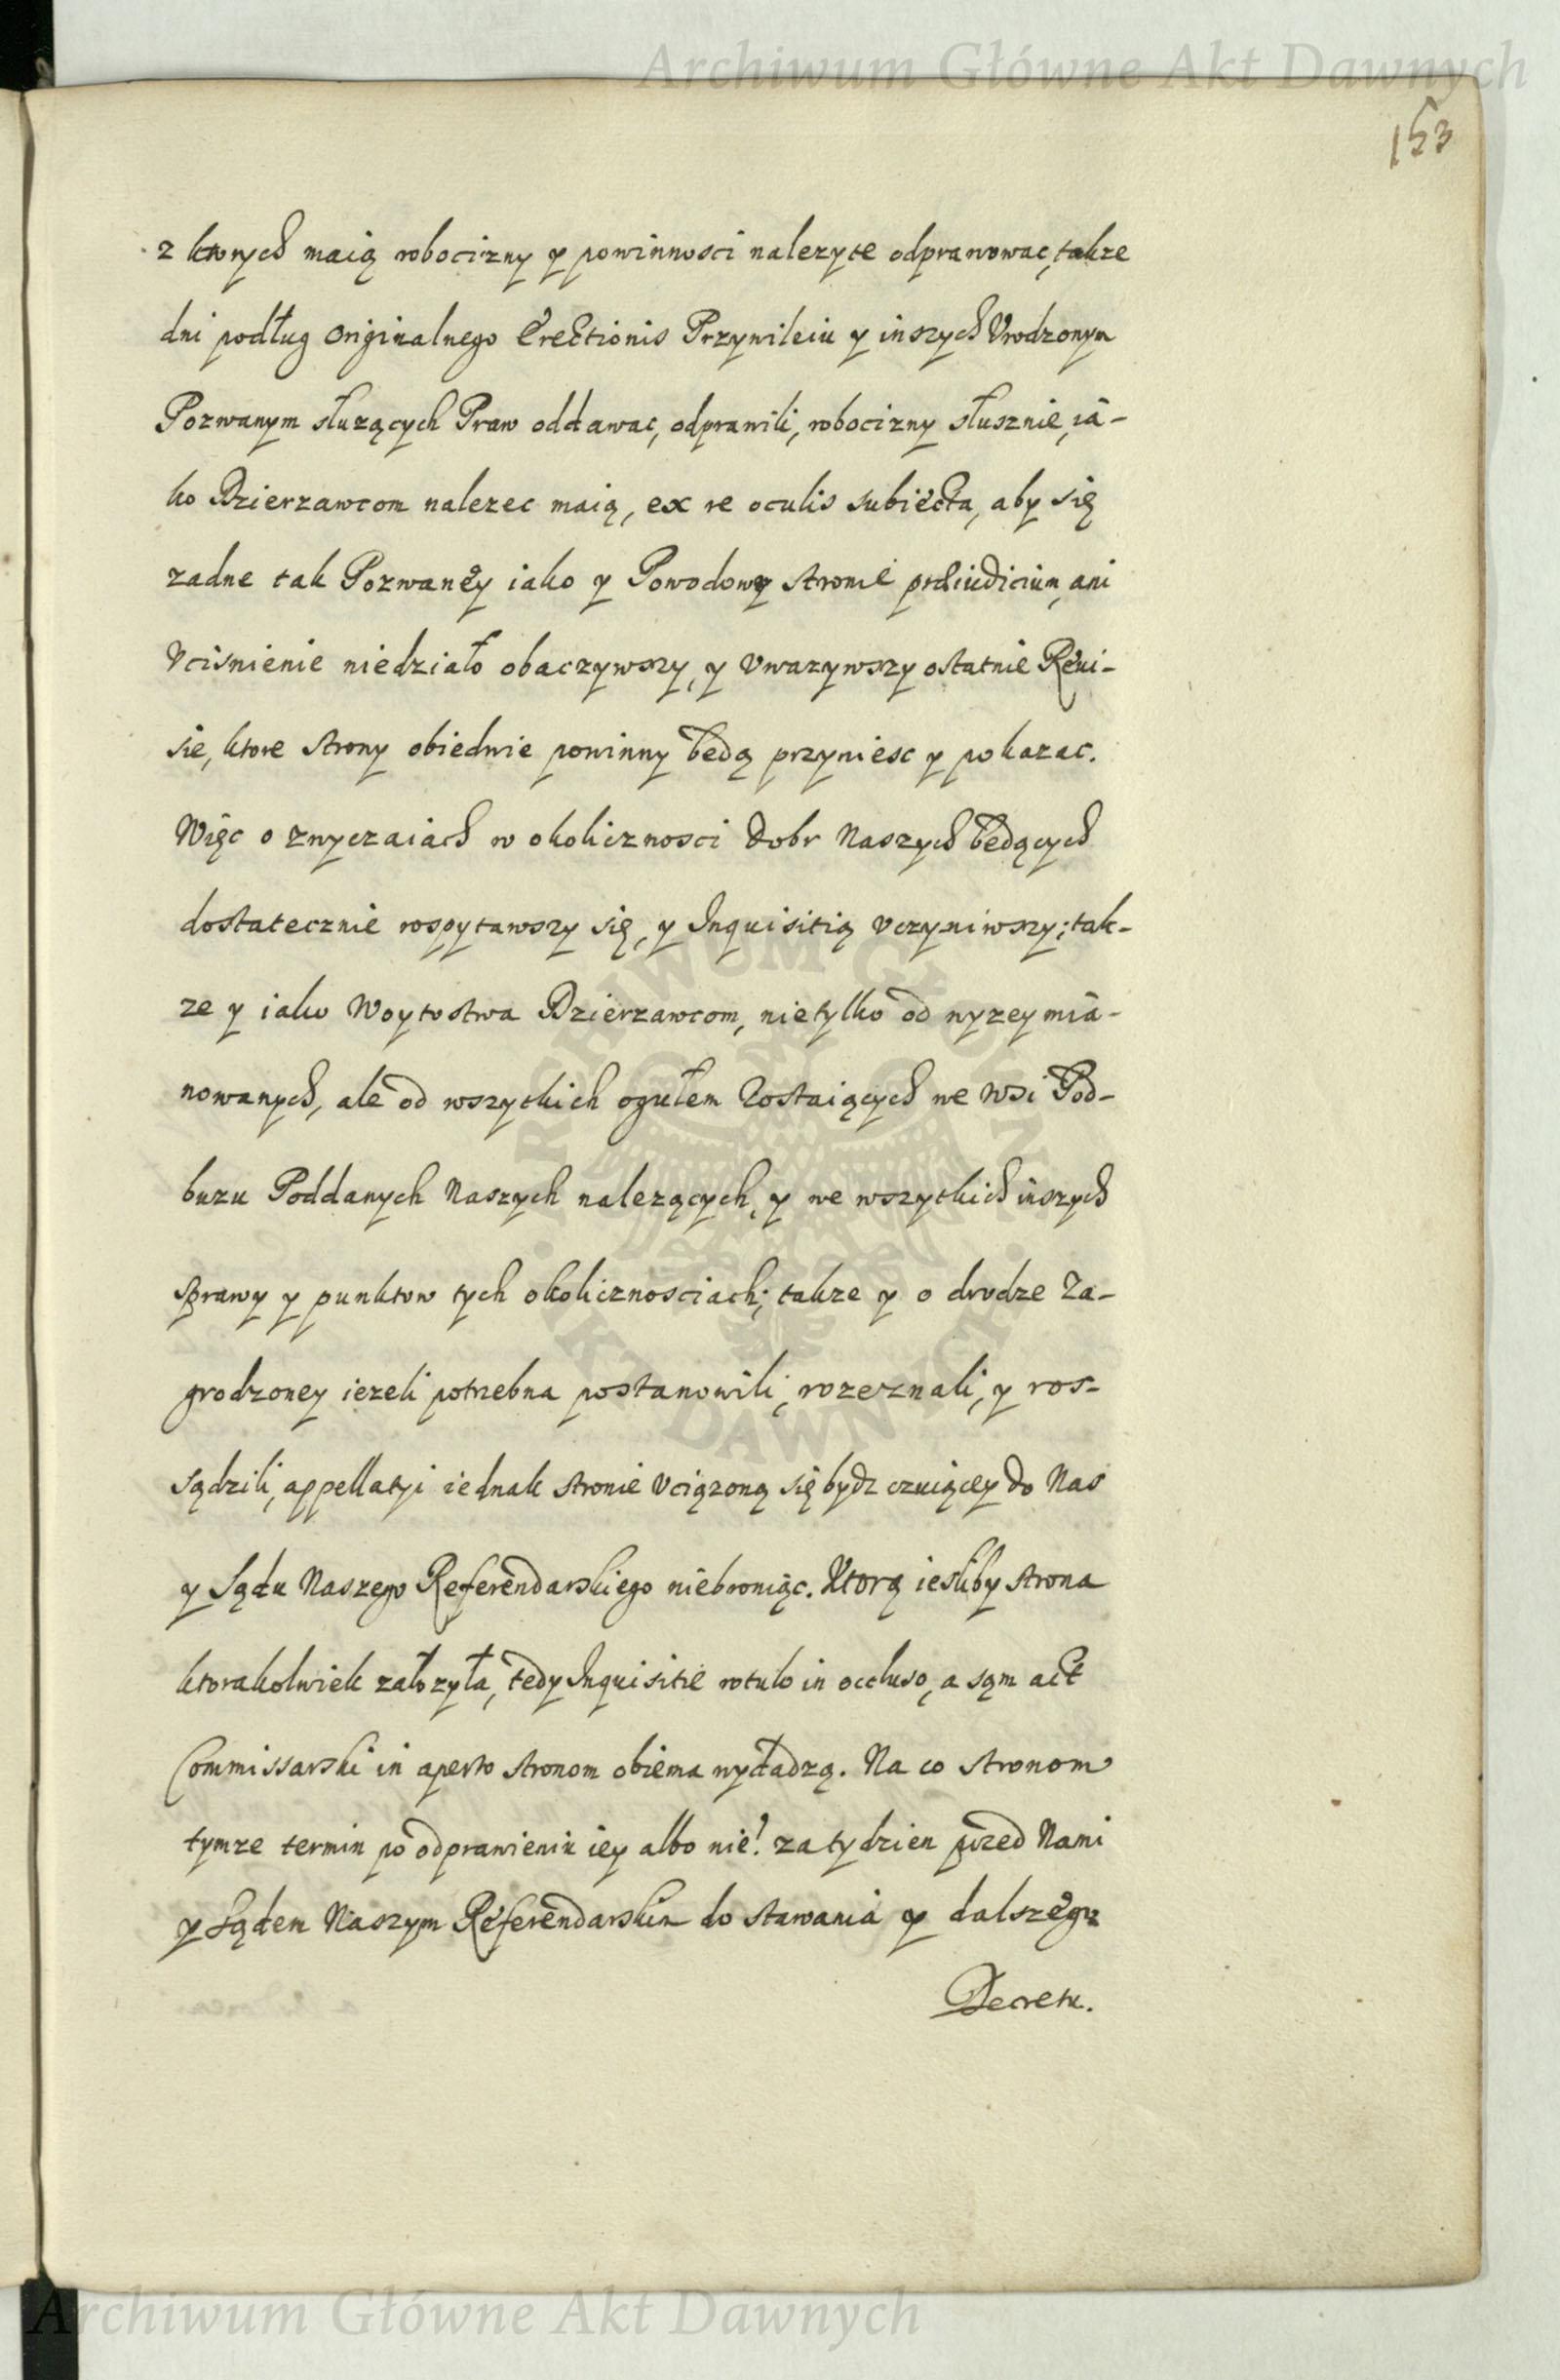 Archiwum Główne Akt Dawnych
153
z ktorych maią robocizny y powinnosci nalezyte odprawowac, takze
dni podług Originalnego Erectionis Przywileiu y inszych Vrodzonym
Pozwanym słuzących Praw oddawac, odprawili, robocizny słusznie, ia-
ko Dzierzawcom nalezec maią, ex re oculis subiecta, aby się
zadne tak Pozwaney iako y Powodowy stronie præiudicium, ani
Vcisnienie niedziało obaczywszy, y Vwazywszy ostatnie Rewi-
sie, ktore strony obiedwie powinny będą przyniesc y pokazac.
Więc o zwyczaiach w okolicznosci Dobr Naszych będących
dostatecznie rospytawszy się, y Inquisitią Vczyniwszy; tak-
ze y iako Woytostwa Dzierzawcom, nietylko od wyzey mia-
nowanych, ale od wszytkich ogułem Zostaiących we Wsi Pod-
buzu Poddanych Naszych nalezących, y we wszytkich inszych
sprawy y punktow tych okolicznosciach; takze y o drodze Za-
grodzoney iezeli potrzebna postanowili, rozeznali, y ros-
sądzili, appellatyi iednak stronie Vciązoną się bydz czuiącey do Nas
y Sądu Naszego Referendarskiego niebroniąc. Ktorą iesliby strona
ktorakolwiek załozyła, tedy Inquisitie rotulo in occluso, a sąm act
Commissarski in aperto stronom obiema wydadzą. Na co stronom
tymze termin po odprawieniu iey albo nie! za tydzien przed Nami
y Sądem Naszym Referendarskim do stawania y dalszego
Decretu.
ARCHIWUM GŁÓWNE
AKT DAWNYCH
Archiwum Główne Akt Dawnych